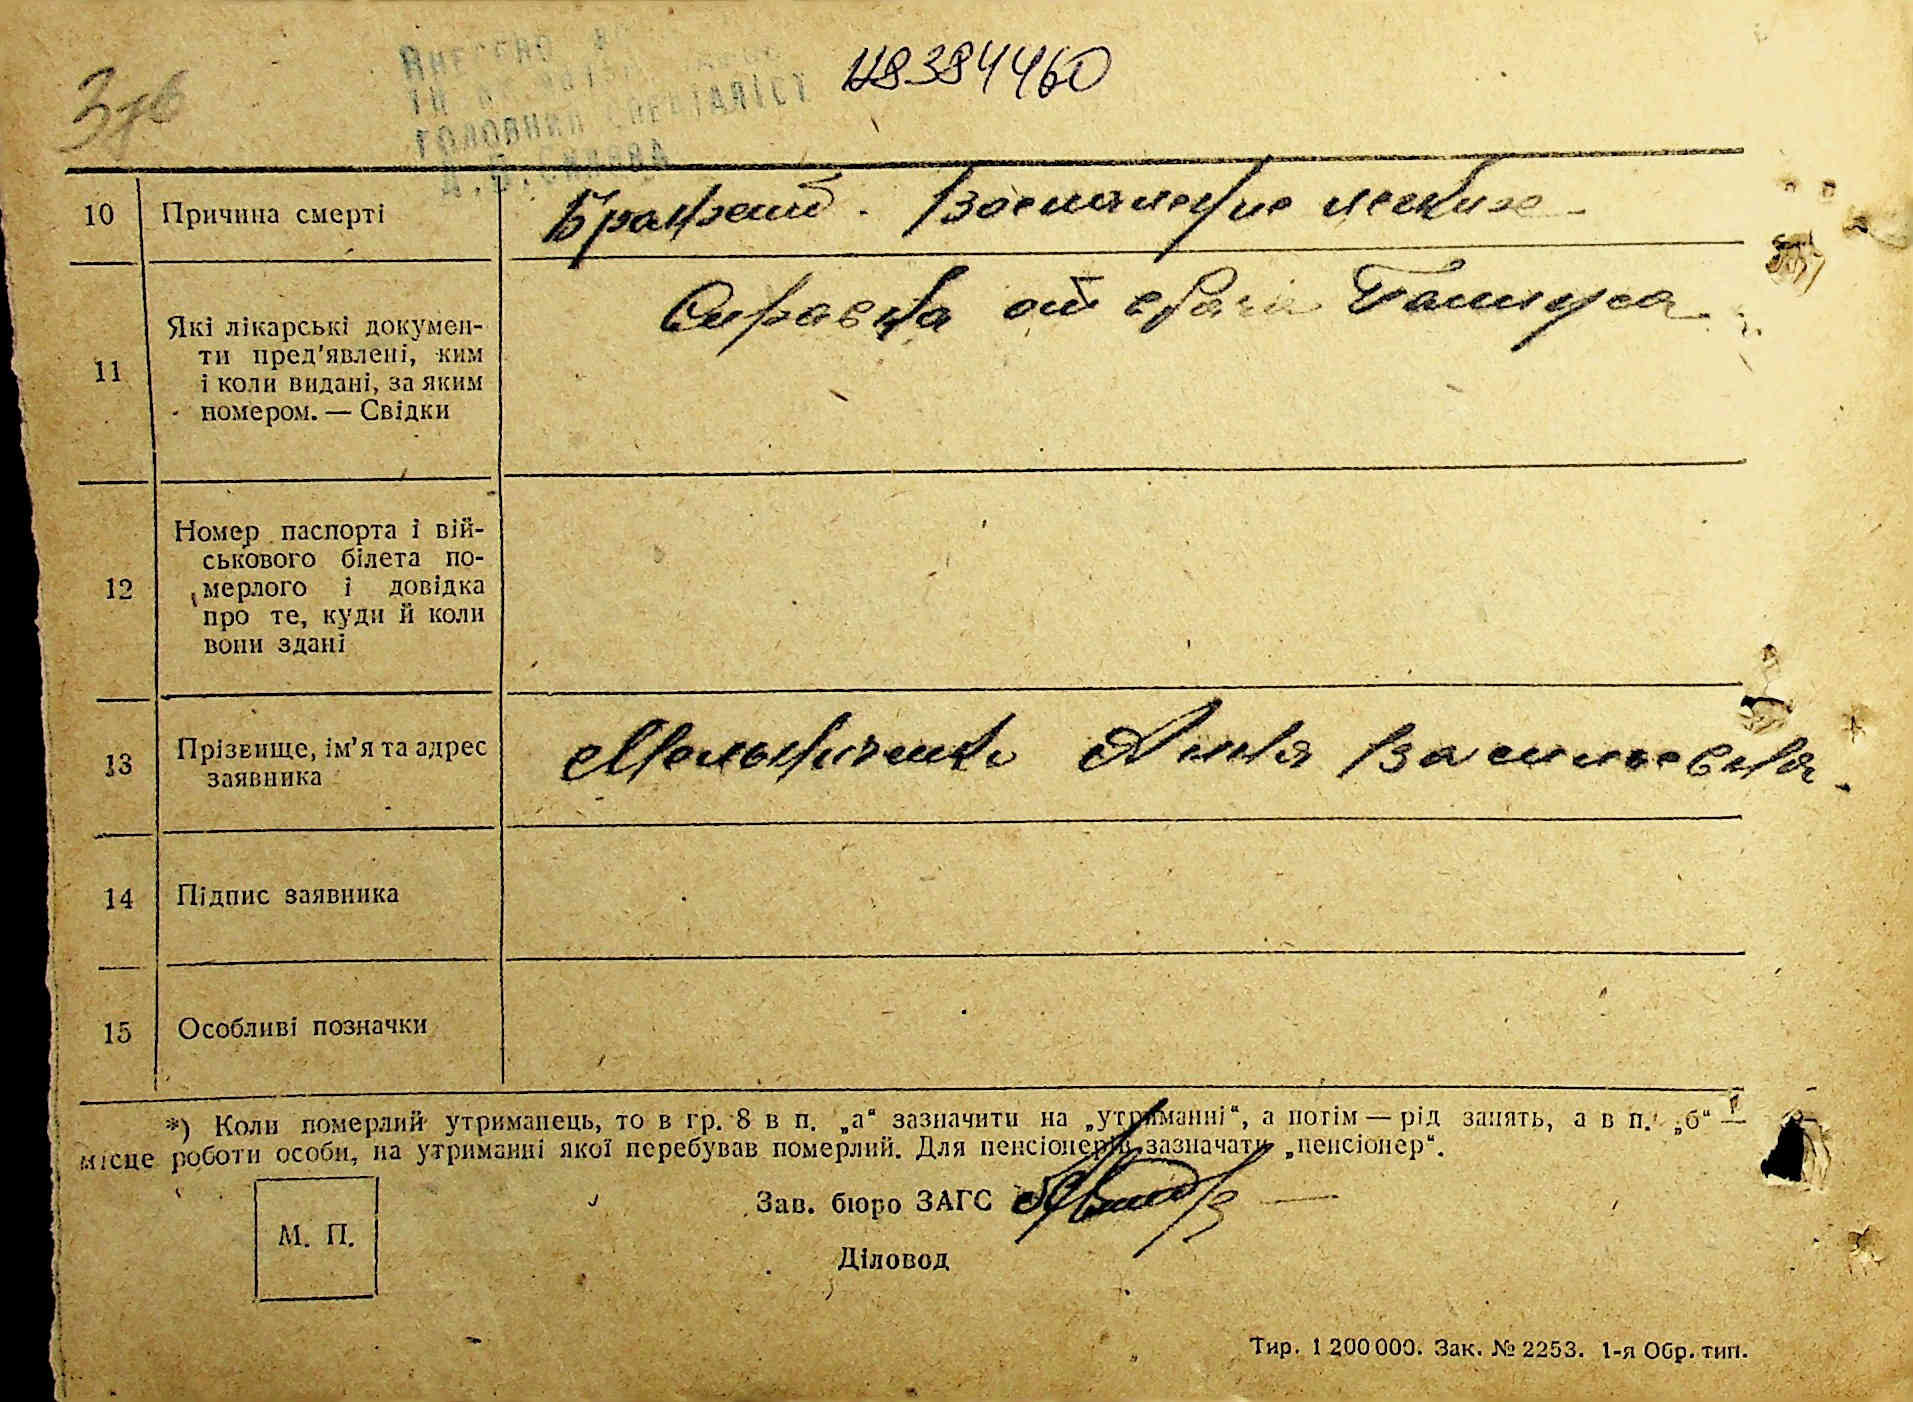 48384460
ГОЛОВНИЙ СПЕЦІАЛІСТ
10 Причина смерті
Бронхит. Воспаление легких
11 Які лікарські докумен-
ти пред'явлені, ким
і коли видані, за яким
номером. — Свідки
Справка от врача
12 Номер паспорта і вій-
ськового білета по-
мерлого і довідка
про те, куди й коли
вони здані
13 Прізвище, ім'я та адрес
заявника
Мельниченко Анна Васильевна
14 Підпис заявника
15 Особливі позначки
*) Коли померлий утриманець, то в гр. 8 в п. „а" зазначити на „утриманні", а потім — рід занять, а в п. „б" —
місце роботи особи, на утриманні якої перебував померлий. Для пенсіонерів зазначати „пенсіонер".
Зав. бюро ЗАГС
М. П.
Діловод
Тир. 1 200 000. Зак. № 2253. 1-я Обр. тип.